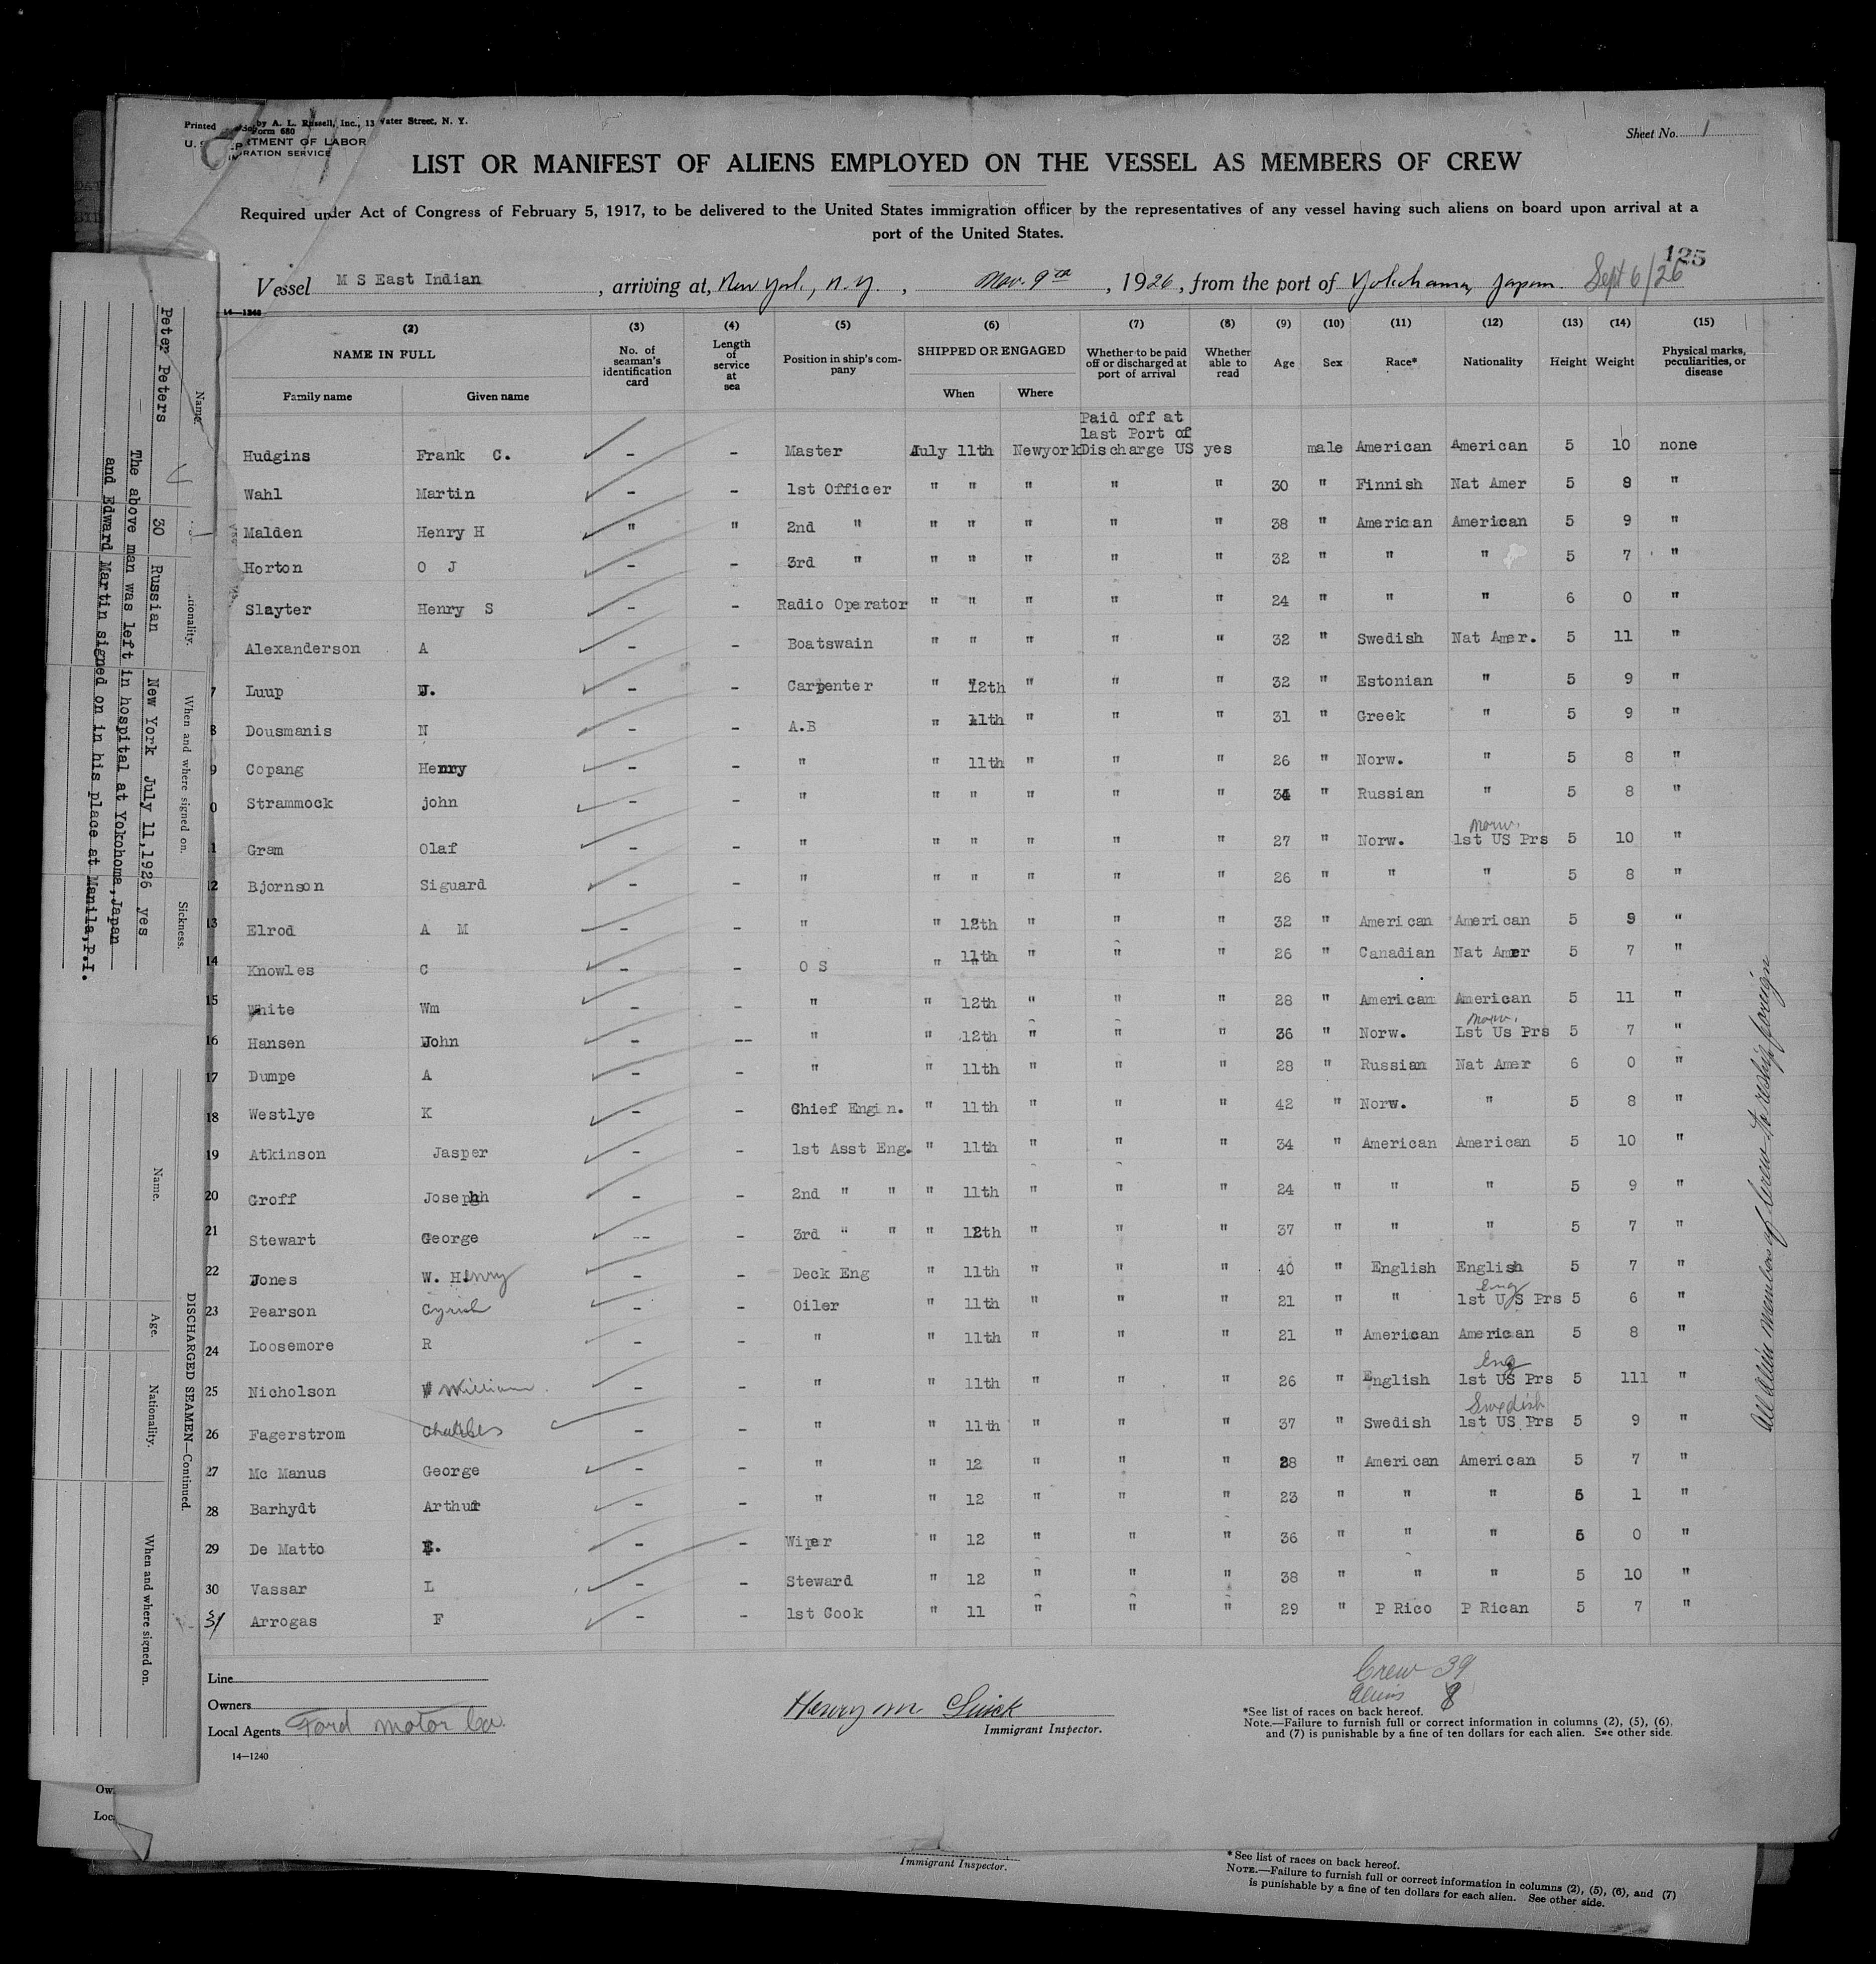 Printed by A. L. Russell, Inc., 13 Water Street, N. Y.
Form 680
RTMENT OF LABOR
IMMIGRATION SERVICE
Sheet No. 1
LIST OR MANIFEST OF ALIENS EMPLOYED ON THE VESSEL AS MEMBERS OF CREW
Required under Act of Congress of February 5, 1917, to be delivered to the United States immigration officer by the representatives of any vessel having such aliens on board upon arrival at a
port of the United States.
125
Vessel M S East Indian, arriving at, New York, N.Y., Nov. 9th, 1926, from the port of Yokohama, Japan. Sept 6/26
14—1240
(2) (3) (4) (5) (6) (7) (8) (9) (10) (11) (12) (13) (14) (15)
NAME IN FULL No. of seaman's identification card Length of service at sea Position in ship's company SHIPPED OR ENGAGED Whether to be paid off or discharged at port of arrival Whether able to read Age Sex Race* Nationality Height Weight Physical marks, peculiarities, or disease
Family name Given name When Where
Paid off at
last Port of
Hudgins Frank C. - - Master July 11th Newyork Discharge US yes male American American 5 10 none
Wahl Martin - - 1st Officer " " " " " 30 " Finnish Nat Amer 5 9 "
Malden Henry H " " 2nd " " " " " " 38 " American American 5 9 "
Horton O J - - 3rd " " " " " " 32 " " " 5 7 "
Slayter Henry S - - Radio Operator " " " " " 24 " " " 6 0 "
Alexanderson A - - Boatswain " " " " " 32 " Swedish Nat Amer. 5 11 "
7 Luup J. - - Carpenter " 12th " " " 32 " Estonian " 5 9 "
8 Dousmanis N - - A.B " 11th " " " 31 " Greek " 5 9 "
9 Copang Henry - - " " 11th " " " 26 " Norw. " 5 8 "
0 Strammock john - - " " " " " " 34 " Russian " 5 8 "
Norw.
1 Gram Olaf - - " " " " " " 27 " Norw. 1st US Prs 5 10 "
12 Bjornson Siguard - - " " " " " " 26 " " " 5 8 "
13 Elrod A M - - " " 12th " " " 32 " American American 5 9 "
14 Knowles C - - O S " 11th " " " 26 " Canadian Nat Amer 5 7 "
15 White Wm - - " " 12th " " " 28 " American American 5 11 "
Norw.
16 Hansen John - -- " " 12th " " " 36 " Norw. 1st Us Prs 5 7 "
17 Dumpe A - - " " 11th " " " 28 " Russian Nat Amer 6 0 "
18 Westlye K - - Chief Engin. " 11th " " " 42 " Norw. " 5 8 "
19 Atkinson Jasper - - 1st Asst Eng. " 11th " " " 34 " American American 5 10 "
20 Groff Joseph - - 2nd " " " 11th " " " 24 " " " 5 9 "
21 Stewart George -- - 3rd " " " 12th " " " 37 " " " 5 7 "
22 Jones W. Henry - - Deck Eng " 11th " " " 40 " English English 5 7 "
Eng
23 Pearson Cyril - - Oiler " 11th " " " 21 " " 1st US Prs 5 6 "
24 Loosemore R - - " " 11th " " " 21 " American American 5 8 "
Eng
25 Nicholson W William - - " " 11th " " " 26 " English 1st US Prs 5 111 "
Swedish
26 Fagerstrom Charles - - " " 11th " " " 37 " Swedish 1st US Prs 5 9 "
27 Mc Manus George - - " " 12 " " " 28 " American American 5 7 "
28 Barhydt Arthur - - " " 12 " " " 23 " " " 5 1 "
29 De Matto - - Wiper " 12 " " " 36 " " " 5 0 "
30 Vassar L - - Steward " 12 " " " 38 " " " 5 10 "
31 Arrogas F - - 1st Cook " 11 " " " 29 " P Rico P Rican 5 7 "
All Alien members of Crew to reship foreign
Line
Owners
Local Agents Ford Motor Co.
14—1240
Henry M.
Immigrant Inspector.
Crew 39
Aliens 8
*See list of races on back hereof.
Note.—Failure to furnish full or correct information in columns (2), (5), (6),
and (7) is punishable by a fine of ten dollars for each alien. See other side.
Name. ionality. When and where signed on. Sickness.
Peter Peters 30 Russian New York July 11,1926 yes
The above man was left in hospital at Yokohoma,Japan
and Edward Martin signed on in his place at Manila,P.I.
DISCHARGED SEAMEN—Continued.
Name. Age. Nationality. When and where signed on.
Ow
Loc
Immigrant Inspector.
* See list of races on back hereof.
NOTE.—Failure to furnish full or correct information in columns (2), (5), (6), and (7)
is punishable by a fine of ten dollars for each alien. See other side.